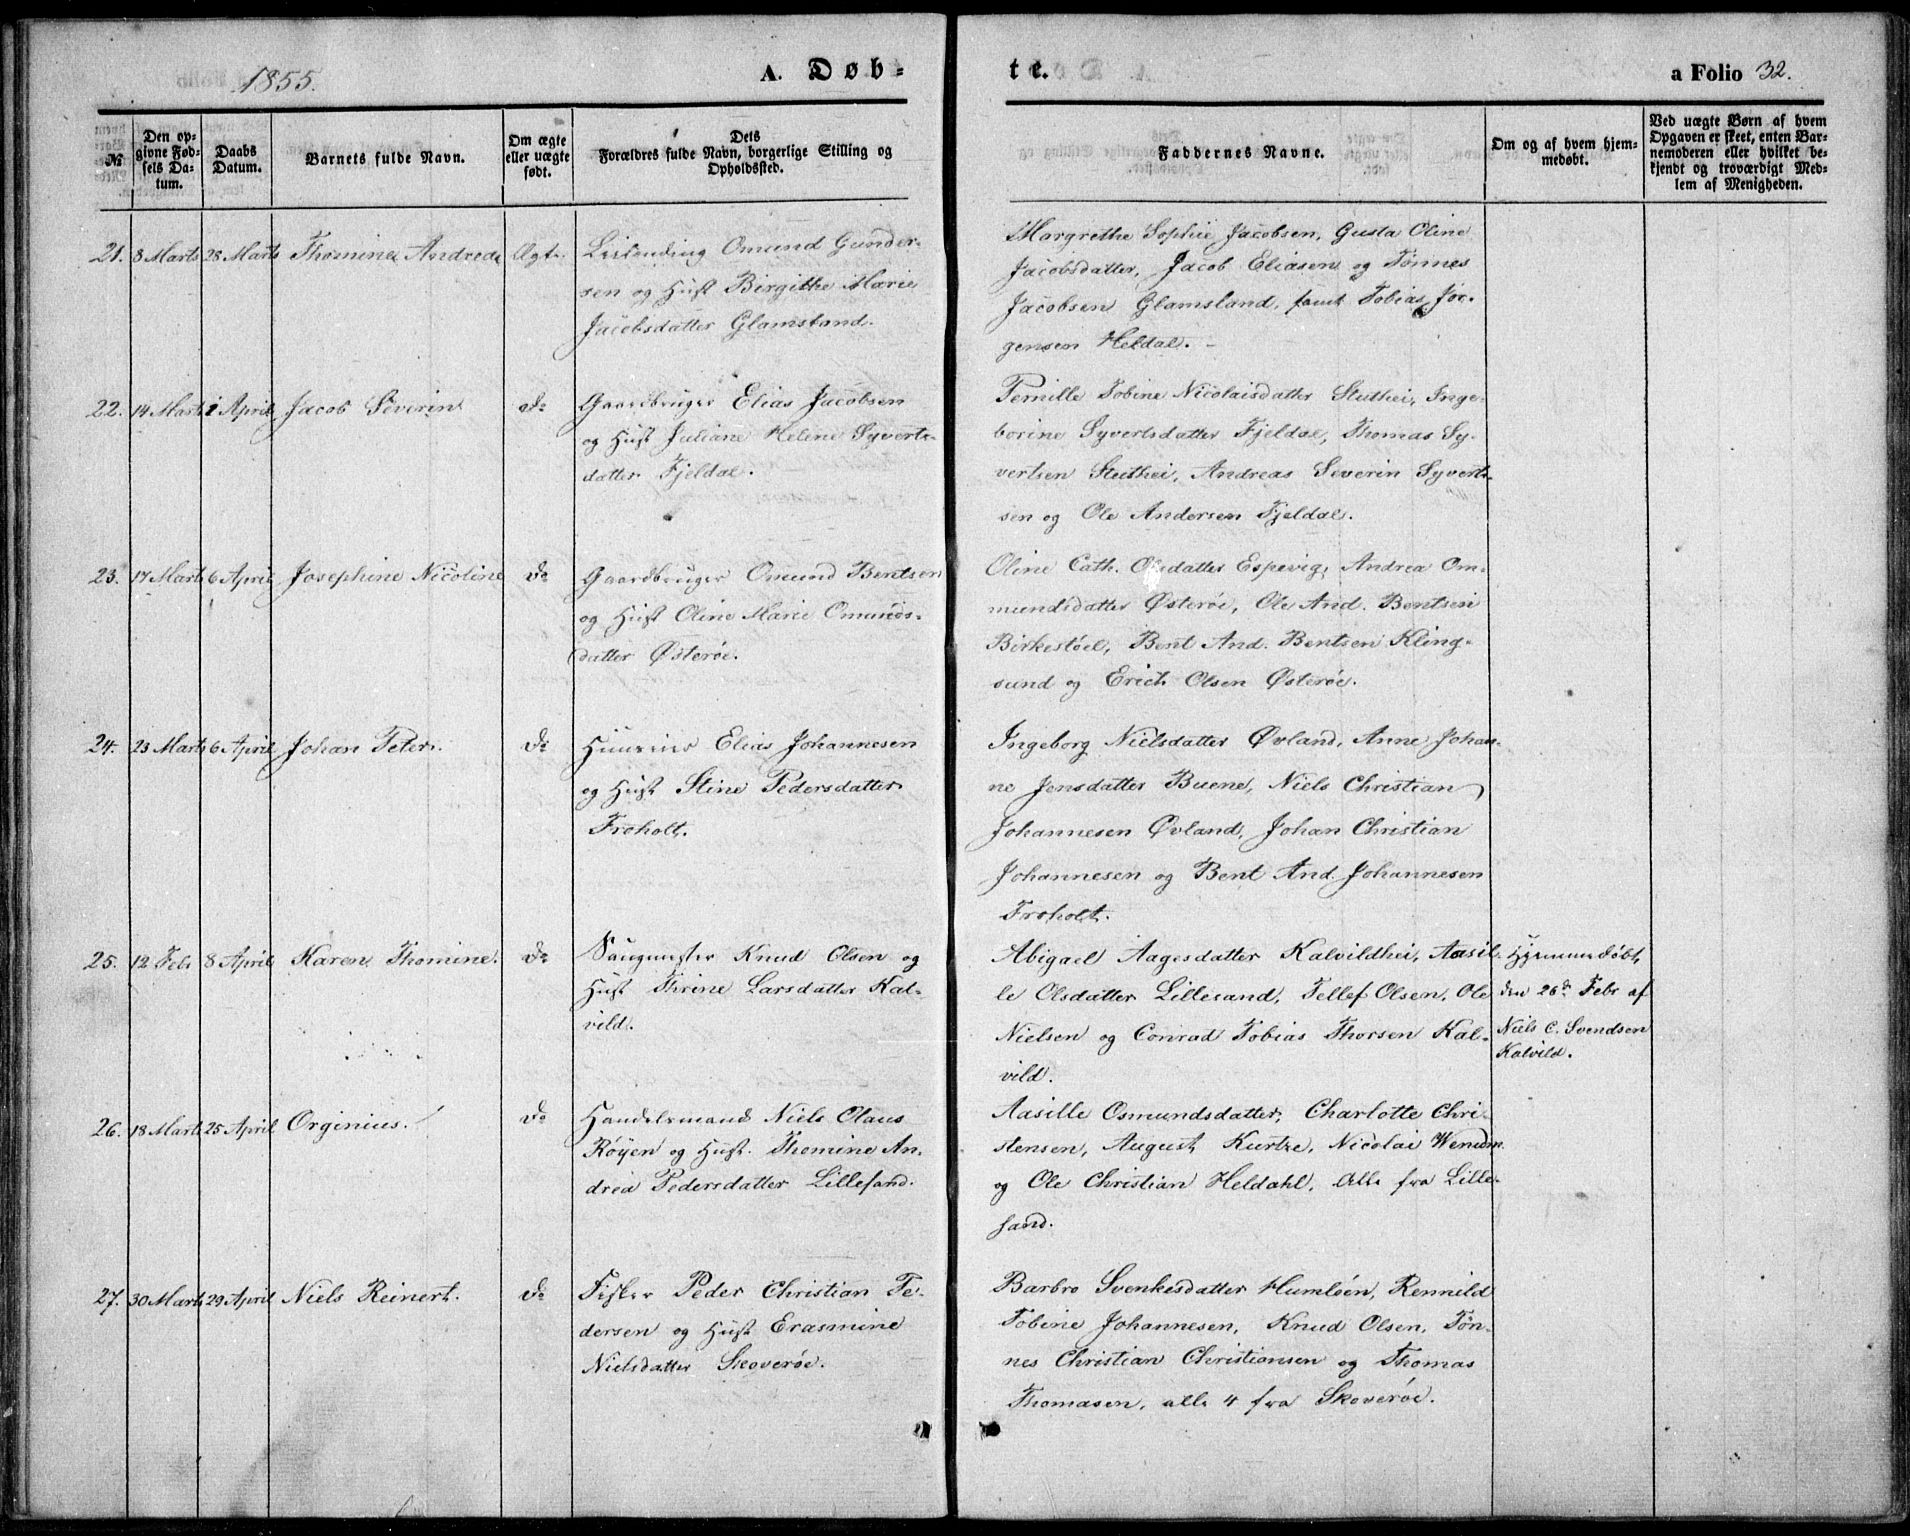 1855.
A. Døb-
te.
a Folio 32.
№
Den op-
givne Fød-
sels Da-
tum.
Daabs
Datum.
Barnets fulde Navn.
Om ægte
eller uægte
født.
Dets
Forældres fulde Navn, borgerlige Stilling og
Opholdssted.
Faddernes Navne.
Om og af hvem hjem-
medøbt.
Ved uægte Børn af hvem
Opgaven er skeet, enten Bar-
nemoderen eller hvilket be-
kjendt og troværdigt Med-
lem af Menigheden.
21. 8 Marts 28 Marts Thomine Andrea Ægte.
Leilending Omund Gunder-
sen og Hust Birgithe Marie
Jacobsdatter Glamsland.
Margrethe Sophie Jacobsen, Gusta Oline
Jacobsdatter, Jacob Eliasen og Tønnes
Jacobsen Glamsland, samt Tobias Jør-
gensen Heldal. -
22. 14 Marts April Jacob Severin do
Gaardbruger Elias Jacobsen
og Hust Juliane Helene Syverts-
datter Fjeldal.
Pernille Tobine Nicolaisdatter Stuthei, Inge-
borine Syvertsdatter Fjeldal, Thomas Sy-
vertsen Stuthei, Andreas Severin Syvert-
sen og Ole Andersen Fjeldal.
23. 17 Marts 6 April Josephine Nicoline do
Gaardbruger Omund Bentsen
og Hust Oline Marie Omunds-
datter Østerøe.
Oline Cath. Olsdatter Espevig, Andrea Om-
mundsdatter Østerøe, Ole And. Bentsen
Birkestøel, Bent And. Bentsen Kling-
sund og Erich Olsen Østerøe.
24. 23 Marts 6 April Johan Peter. do
Huuseier Elias Johannesen
og Hust Stine Pedersdatter
Froholt.
Ingeborg Nielsdatter Øvland, Anne Johan-
ne Jensdatter Buene, Niels Christian
Johannesen Øvland, Johan Christian
Johannesen og Bent And. Johannesen
Froholt.
25. 12 Feb 8 April Karen Thomine. do
Saugmester Knud Olsen og
Hust Thrine Larsdatter Kal-
vild.
Abigael Aagesdatter Kalvildhei, Aasil-
le Olsdatter Lillesand, Tellef Olsen, Ole
Nielsen og Conrad Tobias Thorsen Kal-
vild.
Hjemmedøbt,
den 26de Febr af
Niels C. Svendsen
Kalvild.
26. 18 Marts 25 April Orginius. do
Handelsmand Niels Olaus
Røyen og Hust. Thomine An-
drea Pedersdatter Lillesand.
Aasille Osmundsdatter, Charlotte Chri-
stensen, August Kurtze, Nicolai
og Ole Christian Heldahl, Alle fra Lille-
sand.
27. 30 Marts 29 April Niels Reinert. do
Fisker Peder Christian Pe-
dersen og Hust Erasmine
Nielsdatter Skoverøe.
Barbro Svenkesdatter Humløen, Rennild
Tobine Johannesen, Knud Olsen, Tøn-
nes Christian Christiansen og Thomas
Thomasen, alle 4 fra Skoverøe.